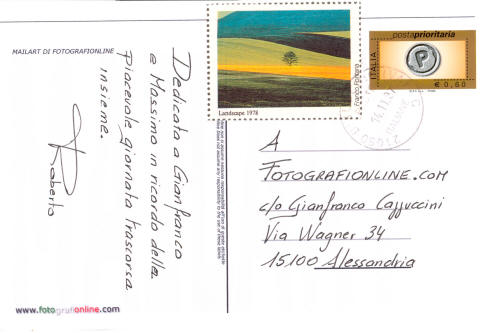 MAILART DI FOTOGRAFIONLINE
Dedicata a Gianfranco
e Massimo in ricordo della
Piacevole giornata trascorsa
insieme.
Roberto
www.fotografionline.com
Landscape 1978
Franco Fontana
ITALIA
postaprioritaria
P
€ 0,60
A
FOTOGRAFIONLINE.COM
c/o Gianfranco Cappuccini
Via Wagner 34
15100 Alessandria